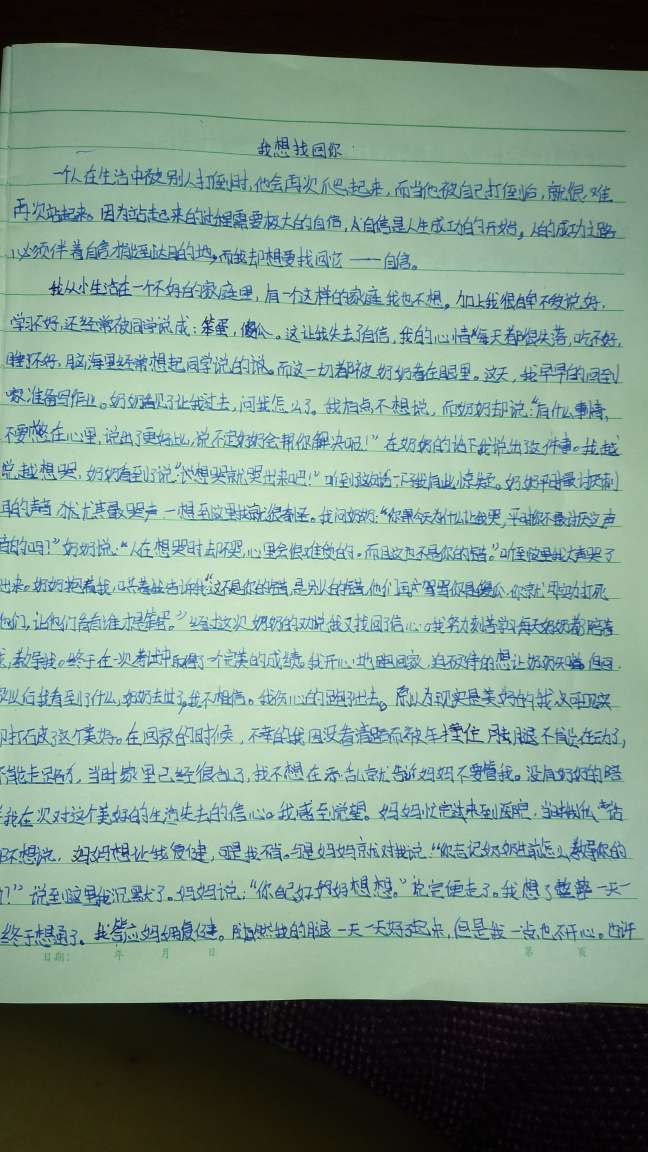 我想找回你
一个人在生活中被别人打倒时,他会再次爬起来,而当他被自己打倒后,就很难
再次站起来。因为站起来的过程需要极大的自信,自信是人生成功的开始,人的成功之路
必须伴着自信才能到达目的地,而我却想要找回它——自信。
我从小生活在一个不好的家庭里,有一个这样的家庭我也不想。加上我很自卑不爱说好,
学习不好,还经常被同学说成:笨蛋,傻瓜。这让我失去了自信,我的心情每天都很失落,吃不好,
睡不好,脑海里经常想起同学说的说。而这一切都被奶奶看在眼里。这天,我早早的回到
家准备写作业。奶奶看见了让我过去,问我怎么了。我有点不想说,而奶奶却说:“有什么事情,
不要憋在心里,说出了更好比,说不定奶奶会帮你解决呢!”在奶奶的话下我说出了这件事。我越
说越想哭,奶奶看到了说:“你想哭就哭出来吧!”听到这句话一下子我有些惊疑。奶奶平时最讨厌刺
耳的声音,尤其是哭声,一想到这里我就很奇怪。我问奶奶:“你今天为什么让我哭,平时你不最讨厌这声
音的吗!”奶奶说:“人在想哭时去不哭,心里会很难受的。而且这也不是你的错。”听到这里我大声哭了
出来。奶奶抱着我,哭着告诉我“这不是你的错,是别人的错,他们再骂你是傻瓜,你就用实力打死
他们,让他们看看谁才是笨蛋。”经过这次奶奶的劝说我又找回了信心。我努力刻苦学习每天奶奶都陪着
我,教导我。终于在一次考试中取得了一个完美的成绩。我开心地跑回家,迫不及待的想让奶奶知道,但
以后我看到了什么,奶奶去世了,我不相信。我伤心的跑出去。原以为现实是美好的我,可现实
却打破了这个美好。在回家的时候,不幸的我因没看清路而被车撞住,用腿不能在动了,
不能走路了,当时家里已经很乱了,我不想在添乱就告诉妈妈不要管我。没有奶奶的陪
我在次对这个美好的生活失去的信心。我感到绝望。妈妈忙完过来到医院,当时
不想说,妈妈想让我复健,可是我不肯。于是妈妈就对我说:“你忘记奶奶生前怎么教导你的
!”说到这里我沉默了。妈妈说:“你自己好好想想。”说完便走了。我想了整整一天
终于想通了。我答应妈妈复健。虽然我的腿一天一天好了起来,但是我一点也不开心。也许
日期: 年 月 日 第 页